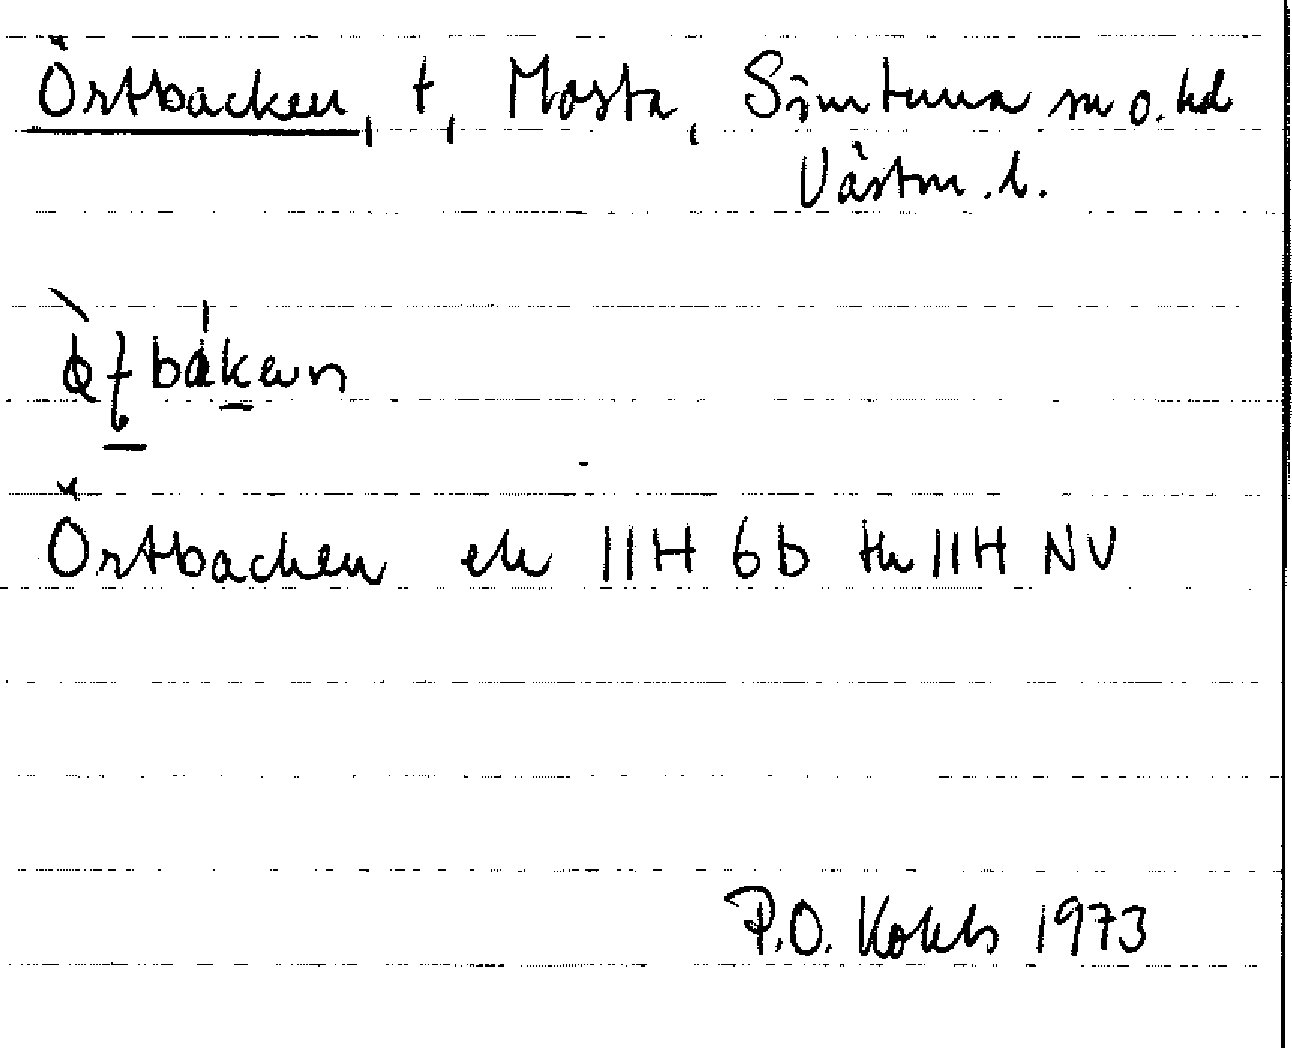 Örtbacken, t, Mosta, Simtuna sn o. hd
Västm. l.
Örtbacken ek 11H 6b tk 11H NV
P.O. 1973